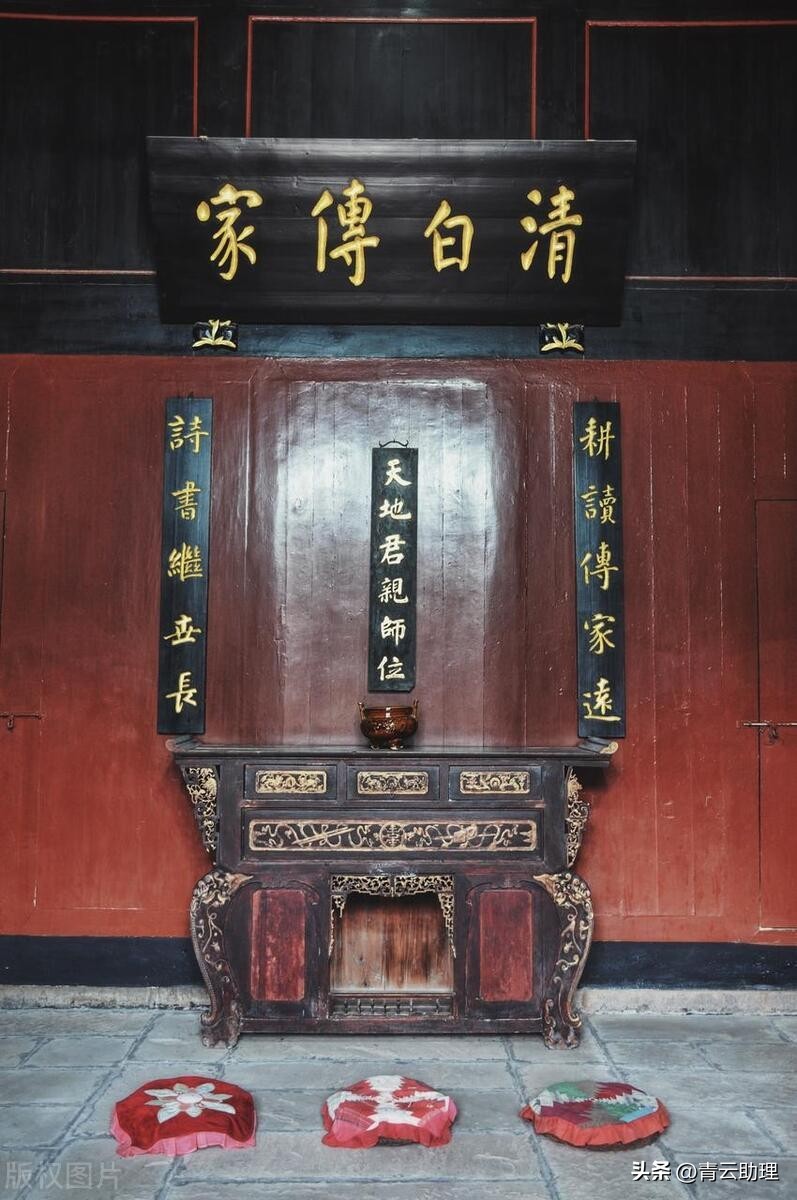 清白傳家
耕讀傳家遠
天地君親師位
詩書繼世長
版权图片
头条 @青云助理